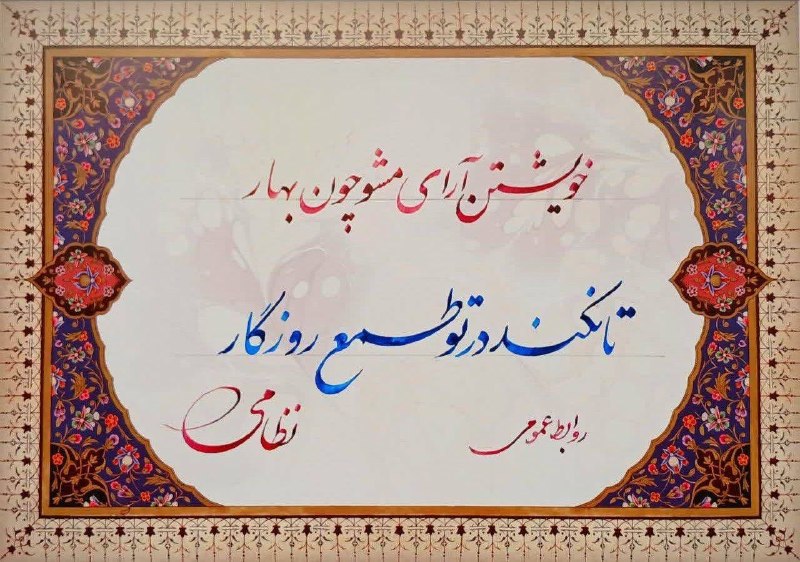 خویشتن آرای مشو چون بهار
تا نکند در تو طمع روزگار
روابط عمومی
نظامی